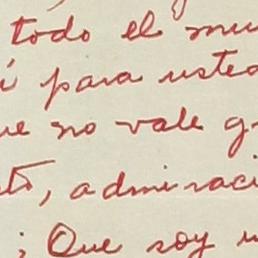 todo el mu
í para usted
ue no vale g
to, admiraci
; Que soy u